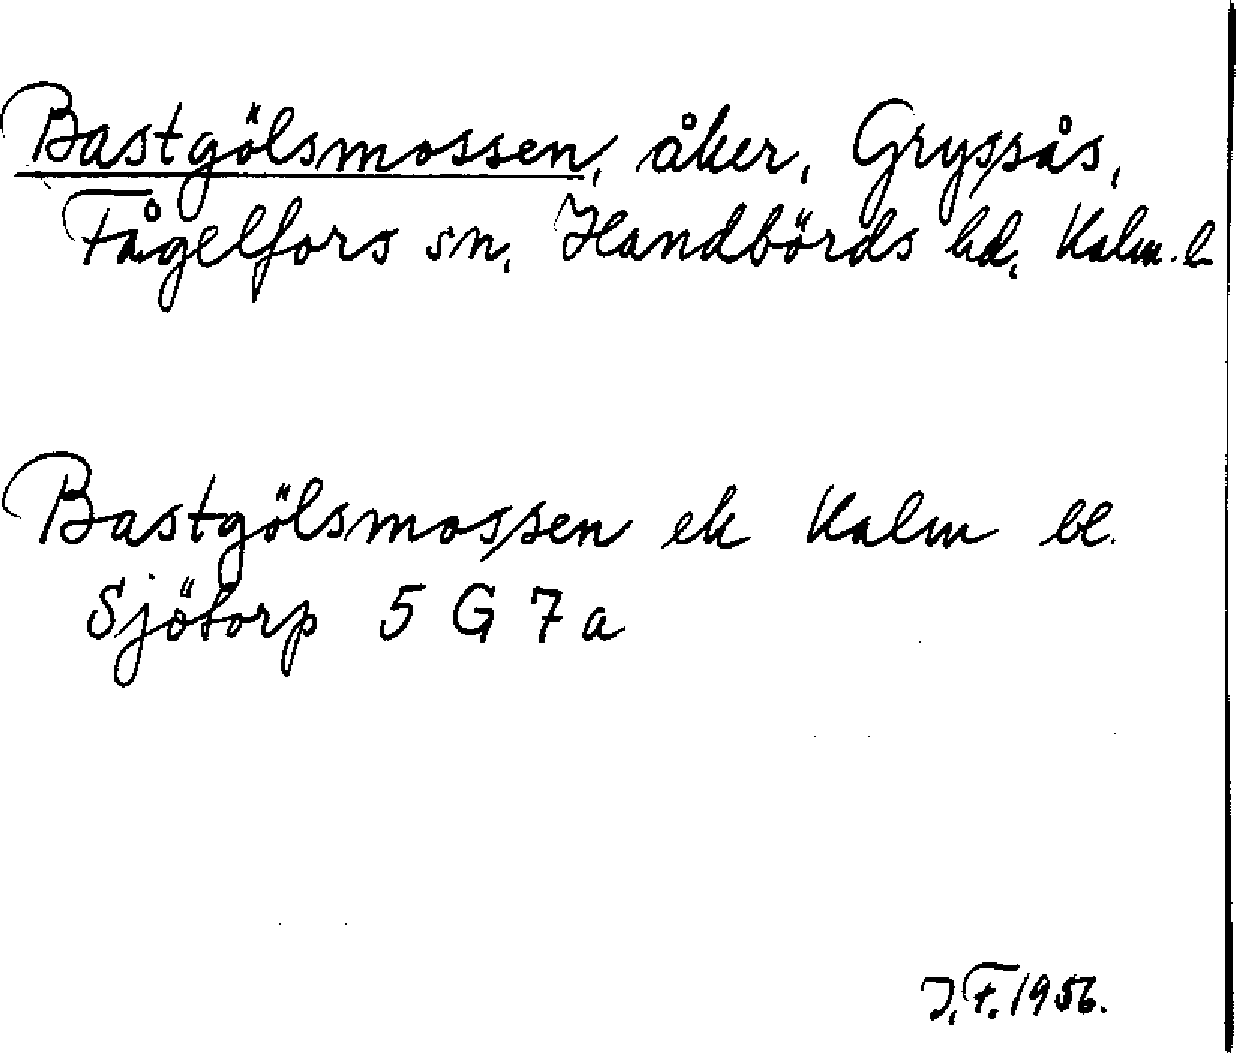 Bastgölsmossen, åker, Gryssås,
Fågelfors sn, Handbörds hd, Kalm. l
Bastgölsmossen ek Kalm bl.
Sjötorp 5 G 7 a
J.F. 1956.